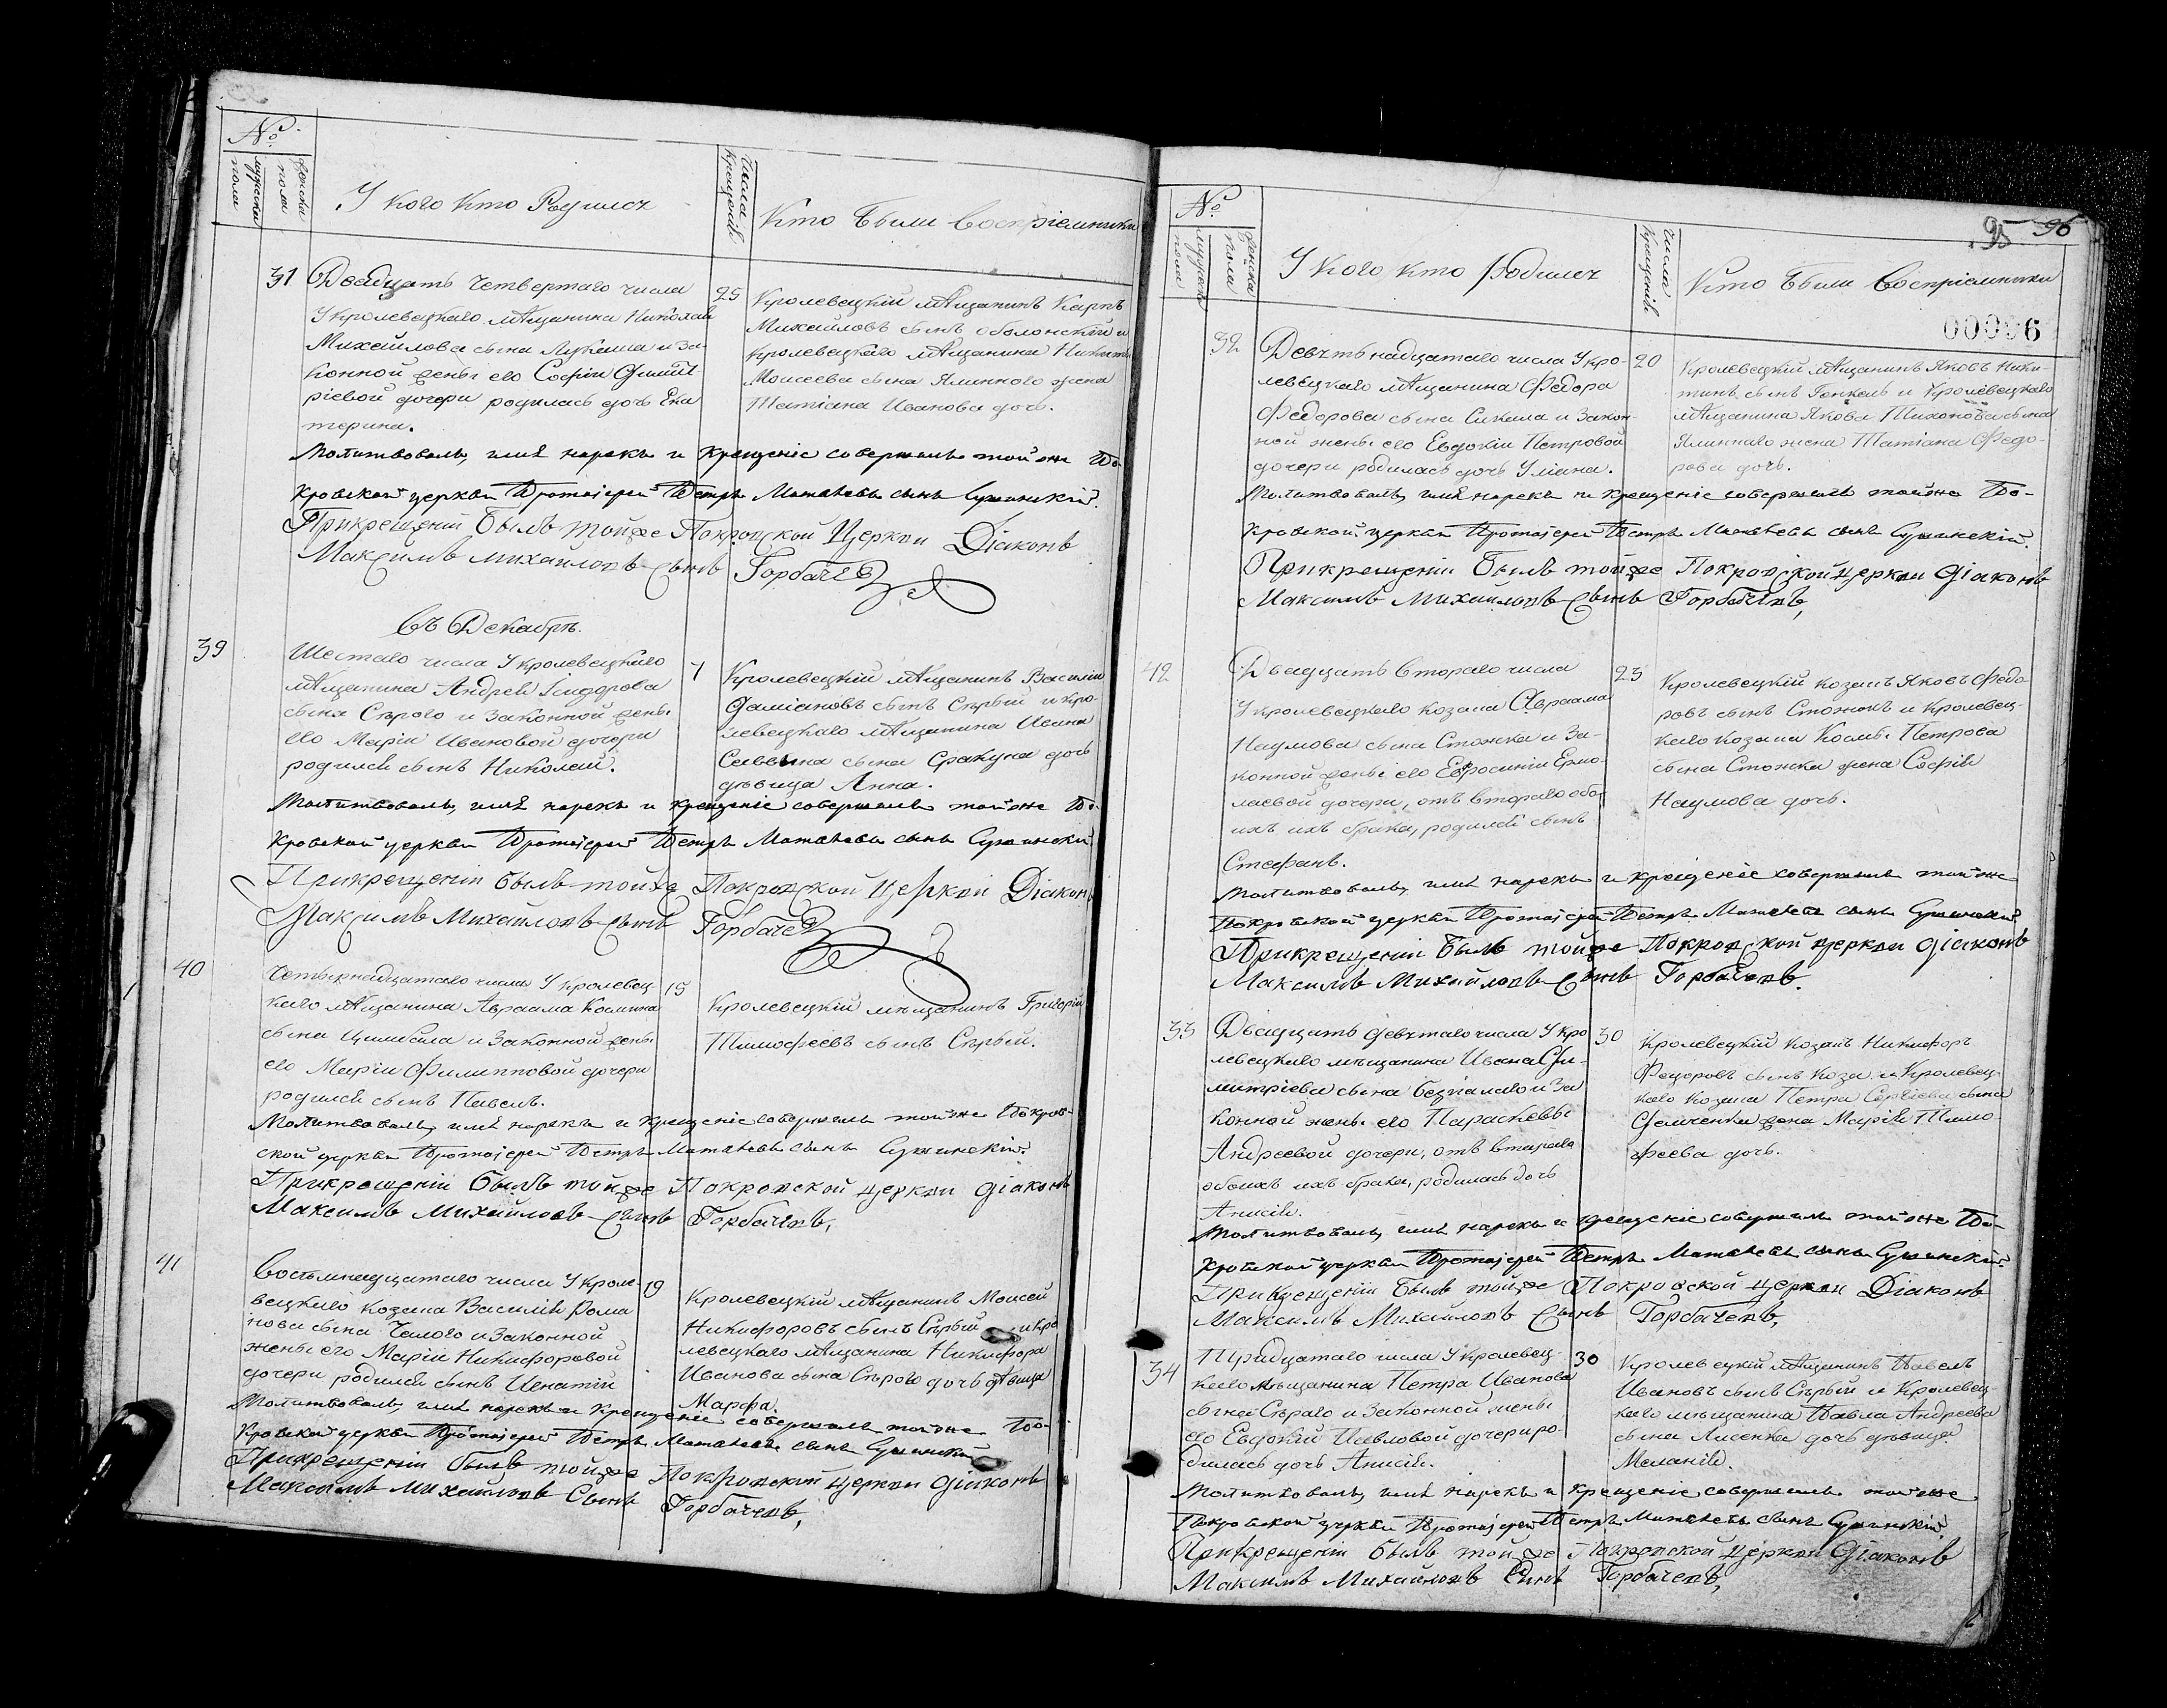 №
мужеска пола
женска пола
У кого кто Родился
Числа Крещенія
Кто были Воспріемники
31
Двадцать четвертаго числа
У кролевецкаго мѣщанина Николая
Михайлова сына Лукаша и за-
конной жены его Софіи Димит
ріевой дочери родилась дочь Ека
терина.
25
Кролевецкій мѣщанинъ Карпъ
Михайловъ сынъ Оболонскій и
кролевецкаго мѣщанина Никиты
Моисеева сына Яминого жена
Татіана Иванова дочь.
Молитвовалъ, имя нарекъ и крещеніе совершилъ той же По-
кровской церкви Протоіерей Петръ Матвѣевъ сынъ Сушинскій.
При крещеніи былъ той же Покровской Церкви Діаконъ
Максимъ Михайловъ сынъ Горбачевъ
Въ Декабрѣ.
39
Шестаго числа У кролевецкаго
мѣщанина Андрея Ісидорова
сына Сѣрого и законной жены
его Маріи Ивановой дочери
родился сынъ Николай.
7
Кролевецкій мѣщанинъ Василій
Даміановъ сынъ Сѣрый и кро-
левецкаго мѣщанина Ивана
Саввина сына дочь
дѣвица Анна.
Молитвовалъ, имя нарекъ и крещеніе совершилъ той же По-
кровской церкви Протоіерей Петръ Матвѣевъ сынъ Сушинскій
При крещеніи былъ той же Покровской Церкви Діаконъ
Максимъ Михайловъ сынъ Горбачевъ
40
Четырнадцатаго числа У кролевец-
каго мѣщанина Авраама Косьмина
сына Цимбала и законной жены
его Маріи Филипповой дочери
родился сынъ Павелъ.
15
Кролевецкій мѣщанинъ Григорій
Тимофеевъ сынъ Сѣрый.
Молитвовалъ, имя нарекъ и крещеніе совершилъ той же Покров-
ской церкви Протоіерей Петръ Матвѣевъ сынъ Сушинскій.
При крещеніи былъ той же Покровской церкви діаконъ
Максимъ Михайловъ сынъ Горбачевъ,
41
Восемнадцатаго числа У кроле-
вецкаго козака Василія Рома
нова сына Чалого и законной
жены его Маріи Никифоровой
дочери родился сынъ Игнатій
19
Кролевецкій мѣщанинъ Моисей
Никифоровъ сынъ Сѣрый и кро
левецкаго мѣщанина Никифора
Иванова сына Сѣрого дочь дѣвица
Марфа.
Молитвовалъ, имя нарекъ и крещеніе совершилъ той же По-
кровской церкви Протоіерей Петръ Матвѣевъ сынъ Сушинскій
При крещеніи былъ той же Покровской церкви діаконъ
Максимъ Михайловъ Сынъ Горбачевъ,
95 96
№
мужеска пола
женска пола
У кого кто родился
Числа Крещенія
Кто были Воспріемники
00096
32
Девятьнадцатаго числа У кро-
левецкаго мѣщанина Федора
Федорова сына Сикала и закон-
ной жены его Евдокіи Петровой
дочери родилась дочь Уліана.
20
Кролевецкій мѣщанинъ Яковъ Ники-
тинъ сынъ и Кролевецкаго
мѣщанина Якова Тихонова сына
Яминаго жена Татіана Федо-
рова дочь.
Молитвовалъ, имя нарекъ и крещеніе совершилъ той же По-
кровской церкви Протоіерей Петръ Матвѣевъ сынъ Сушинскій.
При крещеніи былъ той же Покровской церкви діаконъ
Максимъ Михайловъ сынъ Горбачевъ,
42
Двадцать втораго числа
У кролевецкаго козака Авраама
Наумова сына Стожка и за-
конной жены его Евфросиніи Ермо-
лаевой дочери, отъ втораго обо-
ихъ ихъ брака, родился сынъ
Стефанъ.
23
Кролевецкій козакъ Яковъ Федо
ровъ сынъ Стожокъ и кролевец-
каго козака Косьмы Петрова
сына Стожка жена Софія
Наумова дочь.
Молитвовалъ, имя нарекъ и крещеніе совершилъ той же
Покровской церкви Протоіерей Петръ Матвѣевъ сынъ Сушинскій
При крещеніи былъ той же Покровской церкви діаконъ
Максимъ Михайловъ сынъ Горбачевъ.
33
Двадцать девятаго числа У кро
левецкаго мѣщанина Ивана Ди-
митріева сына Безпалаго и за
конной жены его Параскевы
Андреевой дочери, отъ втораго
обоихъ ихъ брака, родилась дочь
Анисія.
30
Кролевецкій козакъ Никифоръ
Федоровъ сынъ Коза и Кролевец-
каго козака Петра Сергіева сына
Демченка жена Марія Тимо-
феева дочь.
Молитвовалъ, имя нарекъ и крещеніе совершилъ той же По-
кровской церкви Протоіерей Петръ Матвѣевъ сынъ Сушинскій.
При крещеніи былъ той же Покровской церкви Діаконъ
Максимъ Михайловъ Сынъ Горбачевъ,
34
Тридцатаго числа У кролевец-
каго мѣщанина Петра Иванова
сына Сѣраго и законной жены
его Евдокіи Павловой дочери ро-
дилась дочь Анисія.
30
Кролевецкій мѣщанинъ Павелъ
Ивановъ сынъ Сѣрый и Кролевец-
каго мѣщанина Павла Андреева
сына Лисенка дочь дѣвица
Меланія.
Молитвовалъ, имя нарекъ и крещеніе совершилъ той же
Покровской церкви Протоіерей Петръ Матвѣевъ сынъ Сушинскій.
При крещеніи былъ той же Покровской церкви діаконъ
Максимъ Михайловъ Сынъ Горбачевъ,